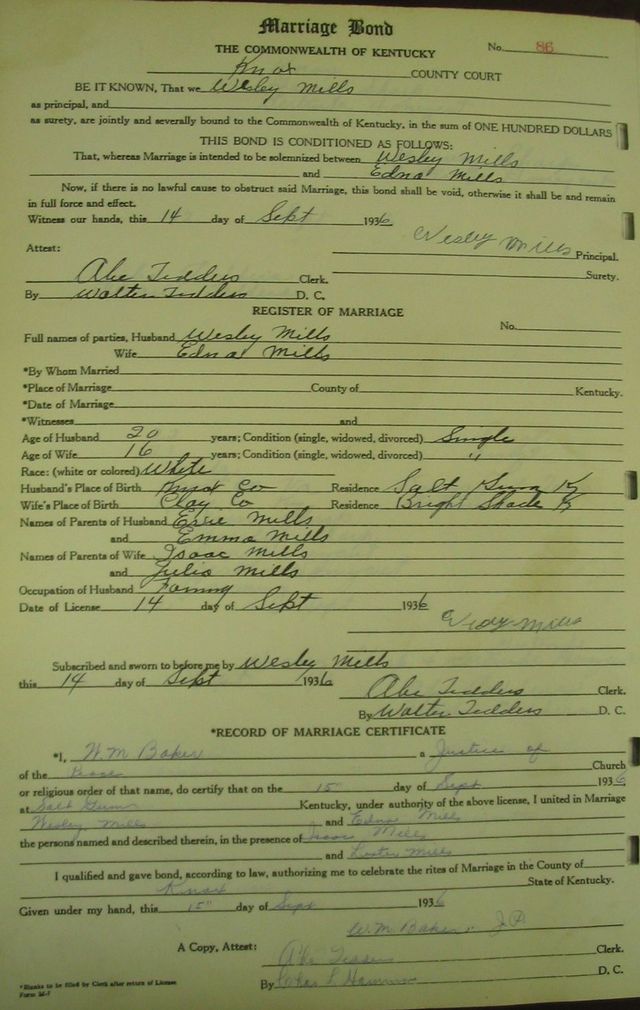 Marriage Bond
THE COMMONWEALTH OF KENTUCKY No. 86
Knox COUNTY COURT
BE IT KNOWN, That we Wesley Mills
as principal, and
as surety, are jointly and severally bound to the Commonwealth of Kentucky, in the sum of ONE HUNDRED DOLLARS
THIS BOND IS CONDITIONED AS FOLLOWS:
That, whereas Marriage is intended to be solemnized between Wesley Mills
and Edna Mills
Now, if there is no lawful cause to obstruct said Marriage, this bond shall be void, otherwise it shall be and remain
in full force and effect.
Witness our hands, this 14 day of Sept 1936
Wesley Mills Principal.
Attest:
Abe Tedders Clerk. Surety.
By Walter Tedders D. C.
REGISTER OF MARRIAGE
No.
Full names of parties, Husband Wesley Mills
Wife Edna Mills
*By Whom Married
*Place of Marriage County of Kentucky.
*Date of Marriage
*Witnesses and
Age of Husband 20 years; Condition (single, widowed, divorced) Single
Age of Wife 16 years; Condition (single, widowed, divorced) "
Race: (white or colored) White
Husband's Place of Birth Knox Co Residence Salt Gum Ky
Wife's Place of Birth Clay Co Residence Bright Shade Ky
Names of Parents of Husband Mills
and Emma Mills
Names of Parents of Wife Isaac Mills
and Julia Mills
Occupation of Husband
Date of License 14 day of Sept 1936
Mills
Subscribed and sworn to before me by Wesley Mills
this 14 day of Sept 1936
Abe Tedders Clerk.
By Walter Tedders D. C.
*RECORD OF MARRIAGE CERTIFICATE
*I, W. M Baker a Justice of
of the Church
or religious order of that name, do certify that on the 15" day of Sept 1936
at Salt Gum Kentucky, under authority of the above license, I united in Marriage
Wesley Mills and Edna Mills
the persons named and described therein, in the presence of Isaac Mills
and Lester Mills
I qualified and gave bond, according to law, authorizing me to celebrate the rites of Marriage in the County of
Knox State of Kentucky.
Given under my hand, this 15" day of Sept 1936
W. M. Baker J.P.
A Copy, Attest: Abe Tedders Clerk.
By D. C.
*Blanks to be filled by Clerk after return of License
Form M-7